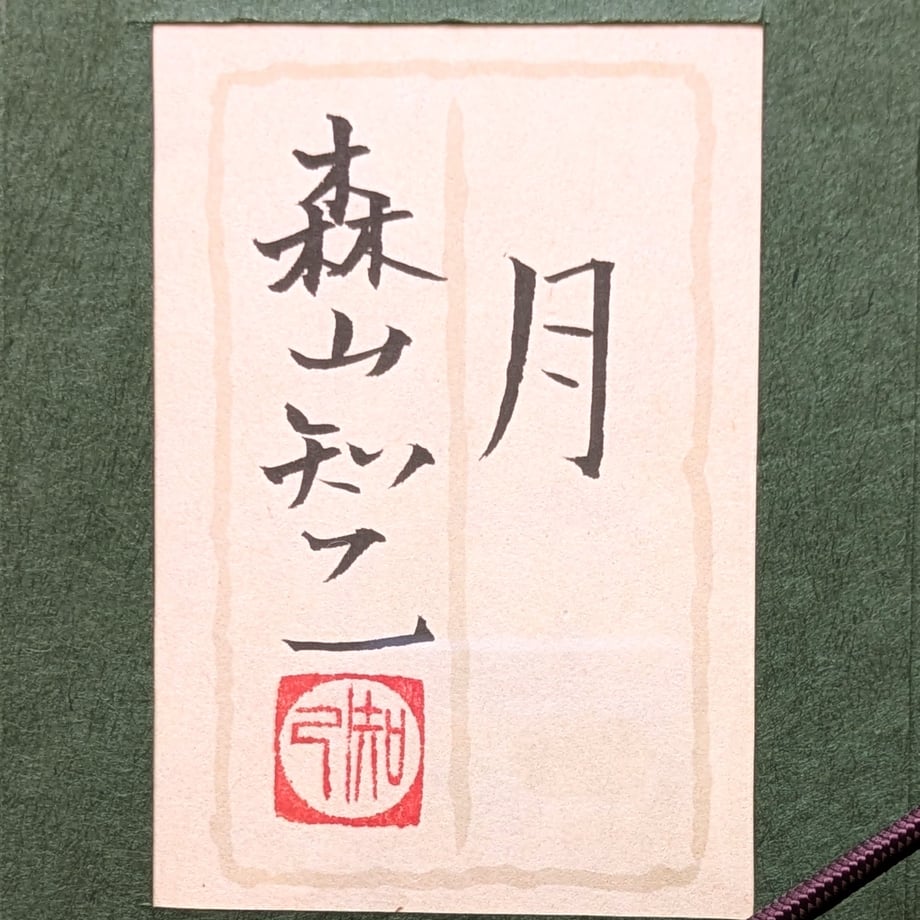 月
森山知己
知己